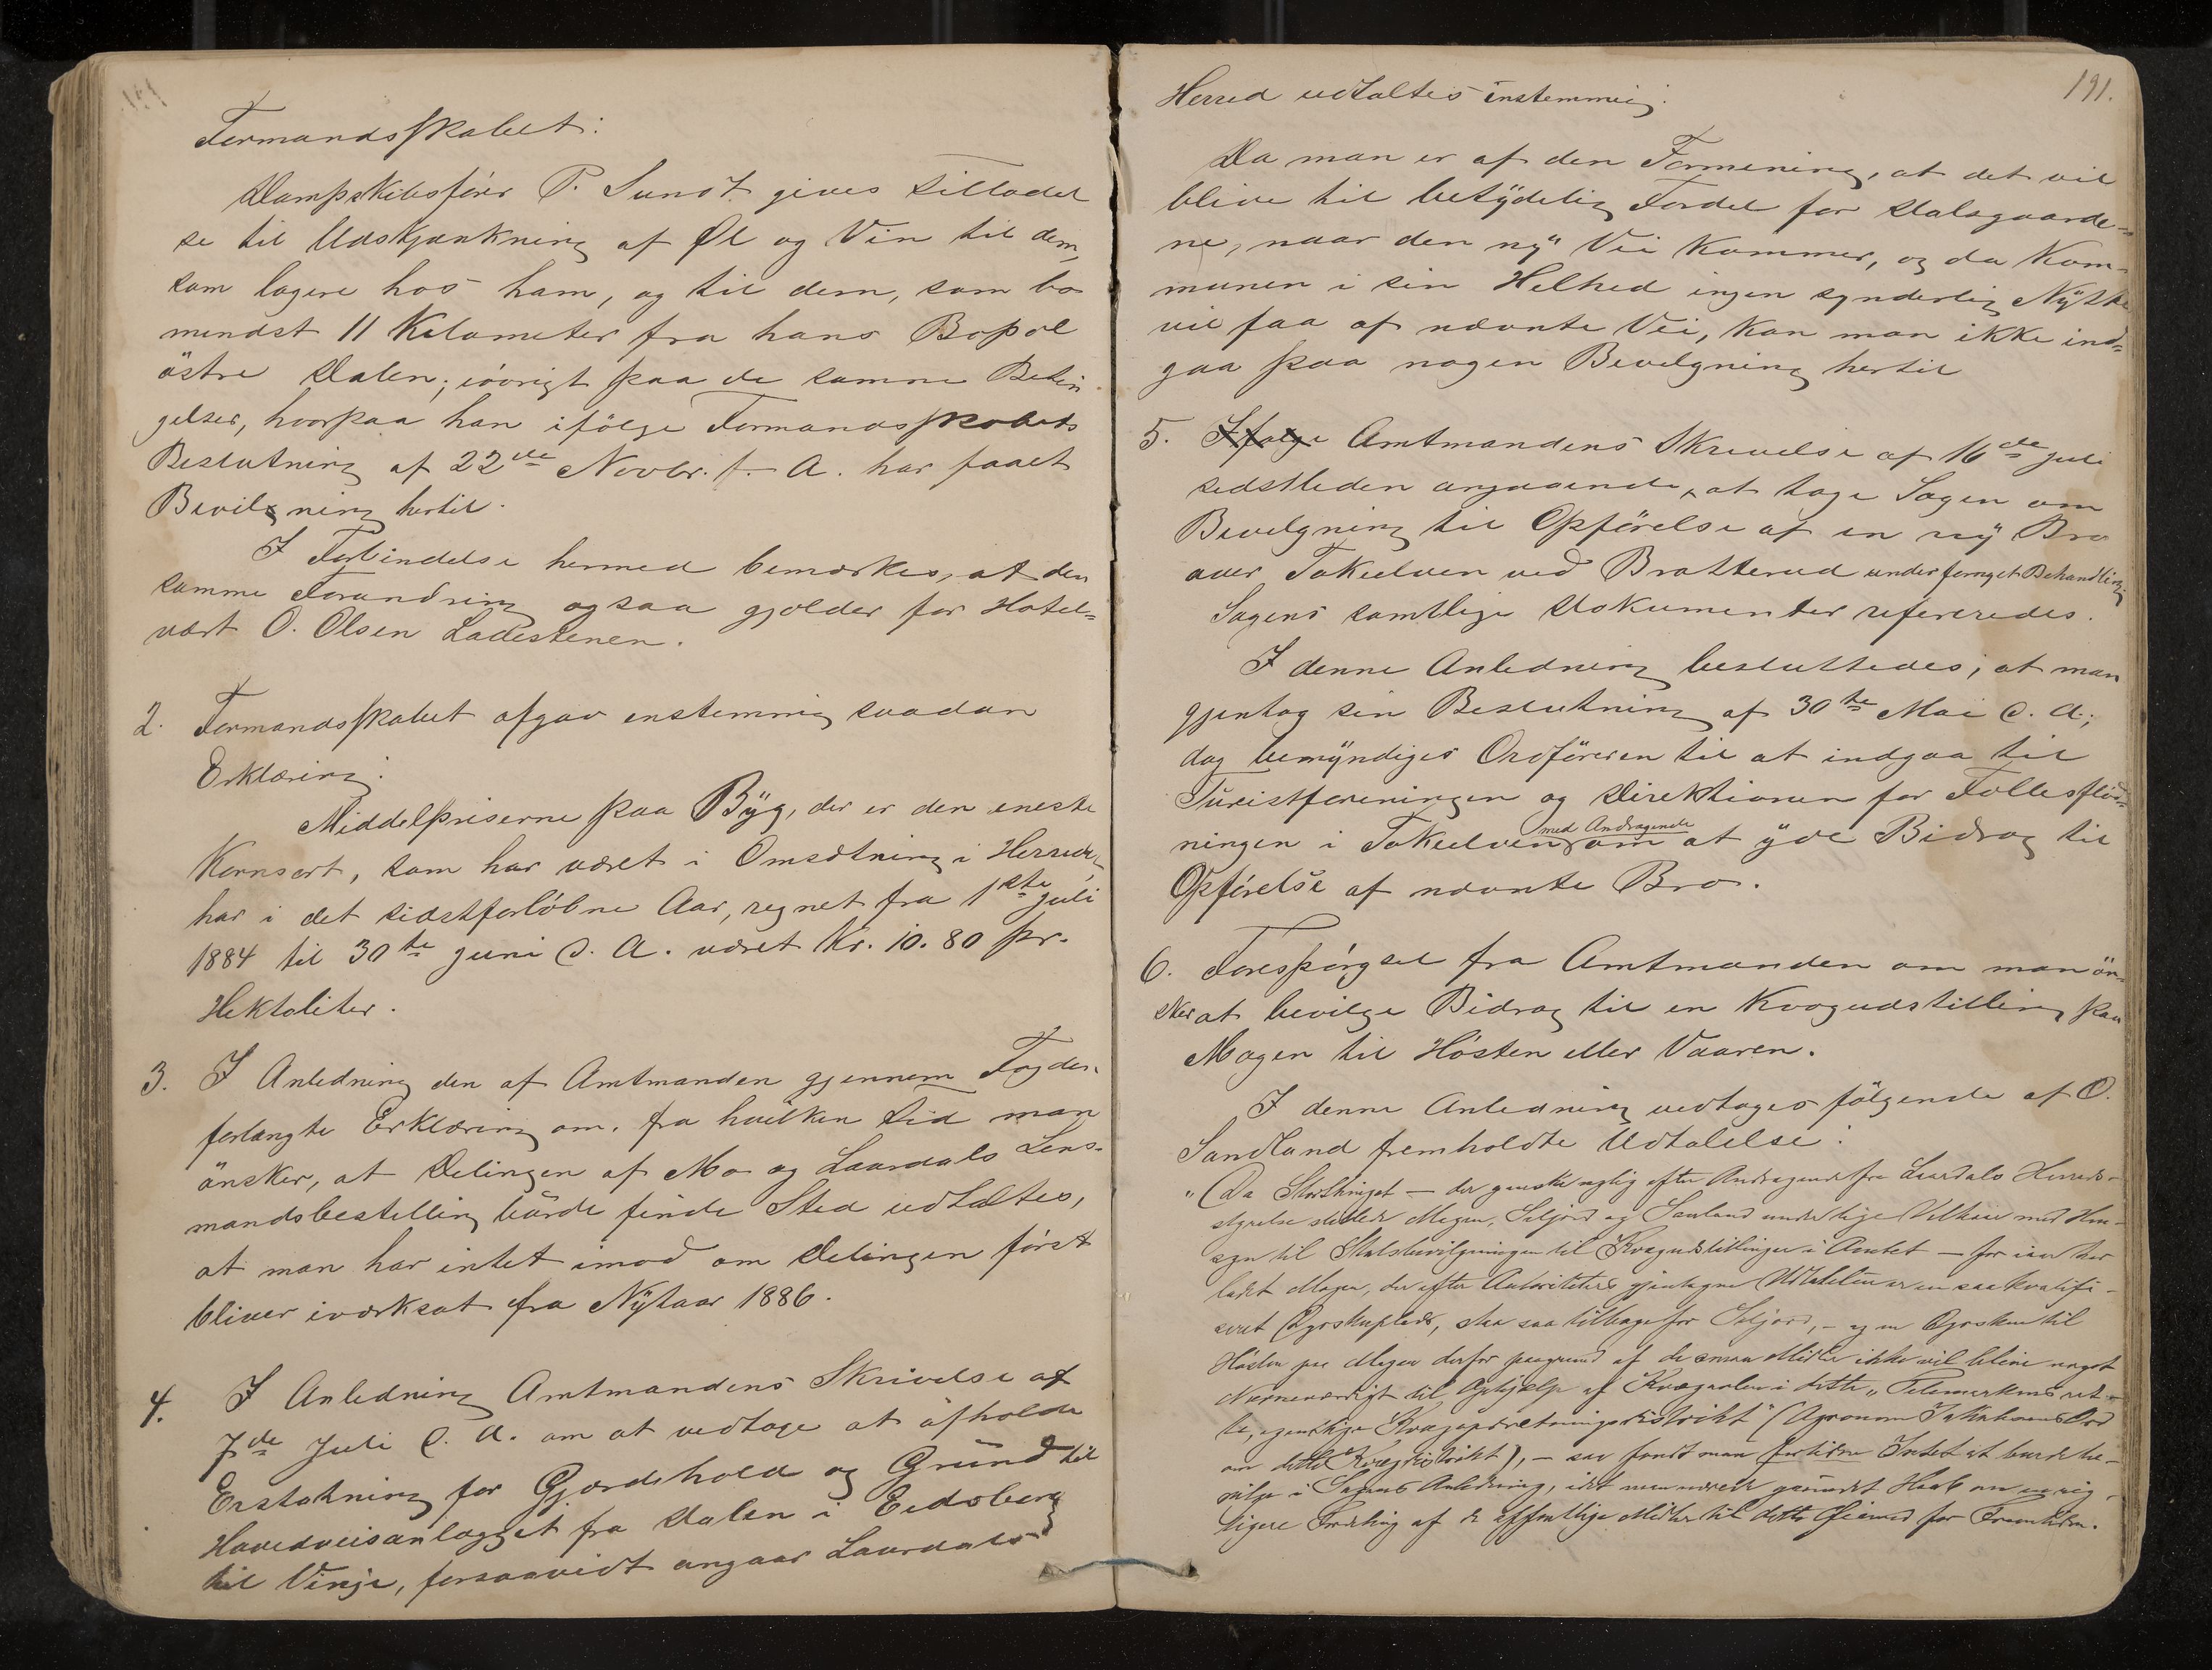 Formandsskabet:
Dampskibsförer P. Sundt gives Tilladel
se til Udskjænkning af Øl og Vin til dem,
som logere hos ham, og til dem, som bo
mindst 11 Kilometer fra hans Bopæl
östre Dalen; iövrigt paa de samme Betin
gelser, hvorpaa han ifölge Formandsskabets
Beslutning af 22de Novbr. f. A. har faaet
Bevilgning hertil.
I Forbindelse hermed bemærkes, at den
samme Forandring ogsaa gjælder for Hotel=
vært O. Olsen Lastestenen.
2. Formandsskabet afgav enstemmig saadan
Erklæring:
Middelpriserne paa Byg, der er den eneste
Kornsort, som har været i Omsætning i Herredet,
har i det sidstforløbne Aar, regnet fra 1ste Juli
1884 til 30te Juni d. A. været Kr. 10.80 pr.
Hektoliter.
3. I Anledning den af Amtmanden gjennem Fogden
forlangte Erklæring om, fra hvilken Tid man
önsker, at Delingen af Mo og Laurdals Lens-
mandsbestilling burde finde Sted udtaltes,
at man har intet imod om Delingen först
bliver iværksat fra Nytaar 1886.
4. I Anledning Amtmandens Skrivelse af
7de Juli d. A. om at vedtage at afholde
Erstatning for Gjærdehold og Grund til
Hovedveisanlægget fra Dalen i Eidsborg
til Vinje, forsaavidt angaar Laurdals
191.
Herred udtaltes enstemmig:
Da man er af den Formening, at det vil
blive til betydelig Fordel for Dalsgaarde=
ne, naar den ny Vei kommer, og da Kom-
munen i sin Helhed ingen synderlig Nytte
vil faa af nævnte Vei, kan man ikke ind=
gaa paa nogen Bevilgning hertil
5. Ifølge Amtmandens Skrivelse af 16de Juli
sidstleden angaaende, at tage Sagen om
Bevilgning til Opförelse af en ny Bro
over Tokeelven ved Bratterud under fornyet Behandling
Sagens samtlige Dokumenter refereredes.
I denne Anledning besluttedes, at man
gjentog sin Beslutning af 30te Mai d. A.;
dog bemyndiges Ordföreren til at indgaa til
Turistforeningen og Direktionen for Fællesflöd=
ningen i Tokeelven med Andragende om at yde Bidrag til
Opförelse af nævnte Bro.
6. Forespörgsel fra Amtmanden om man ön-
sker at bevilge Bidrag til en Kvægudstilling paa
Mogen til Hösten eller Vaaren.
I denne Anledning vedtages fölgende af O.
Sandland fremholdte Udtalelse:
"Da Storthinget — der ganske nylig efter Andragende fra Laurdals Herreds-
styrelse stillede Mogen, Seljord og Sauland under lige Vilkaar med Hen-
syn til Statsbevilgningen til Kvægudstillinger i Amtet — for iaar har
ladet Mogen, der efter Autoriteters gjentagne Udtalelser er en saa kvalifi-
ceret Dyrskueplads, staa saa tilbage for Seljord, – og en Dyrskue til
Hösten paa Mogen derfor paagrund af de smaa Midler ikke vil blive noget
Nævneværdigt til Ophjælp af Kvægavlen i dette "Telemarkens ret-
te, egentlige Kvægopdrætningsdistrikt" (Agronom Ord
om dette Kvægdistrikt), – saa fandt man fortiden Intet at burde be-
vilge i Sagens Anledning, idet man nærede grundet Haab om en rig-
tigere Fordeling af de offentlige Midler til dette Øiemed for Fremtiden.